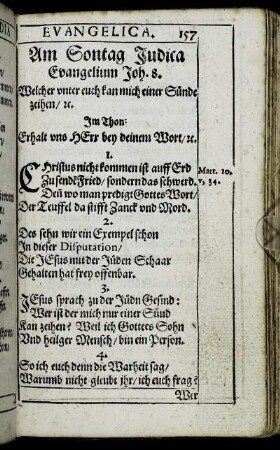 EVANGELICA. 157
Am Sontag Judica
Evangelium Joh. 8.
Welcher vnter euch kan mich einer Sünde
zeihen/ ꝛc.
Im Thon:
Erhalt vns HErr bey deinem Wort/ ꝛc.
1.
CHristus nicht kommen ist auff Erd
Zu sendẽ Fried/ sondern das schwerd. Matt. 10.
Deñ wo man predigt Gottes Wort/ v. 34.
Der Teuffel da stifft Zanck vnd Mord.
2.
Des sehn wir ein Exempel schon
In dieser Disputation/
Die JEsus mit der Jüden Schaar
Gehalten hat frey offenbar.
3.
JEsus sprach zu der Jüdn Gesind:
Wer ist der mich nur einer Sünd
Kan zeihen? Weil ich Gottes Sohn
Vnd heilger Mensch/ bin ein Person.
4.
So ich euch denn die Warheit sag/
Warumb nicht gleubt jhr/ ich euch frag?
Wer